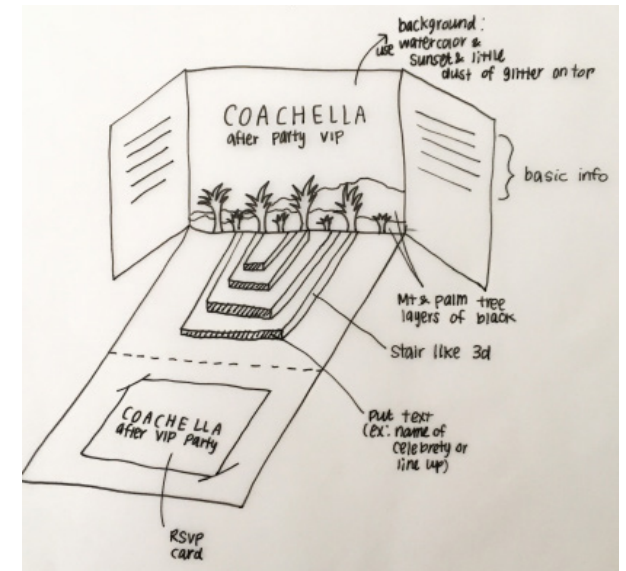 background:
use watercolor &
sunset & little
dust of glitter on top
COACHELLA
after party VIP
basic info
Mt & palm tree
layers of black
Stair like 3d
put text
(ex: name of
celebrety or
line up)
COACHELLA
after VIP Party
RSVP
card